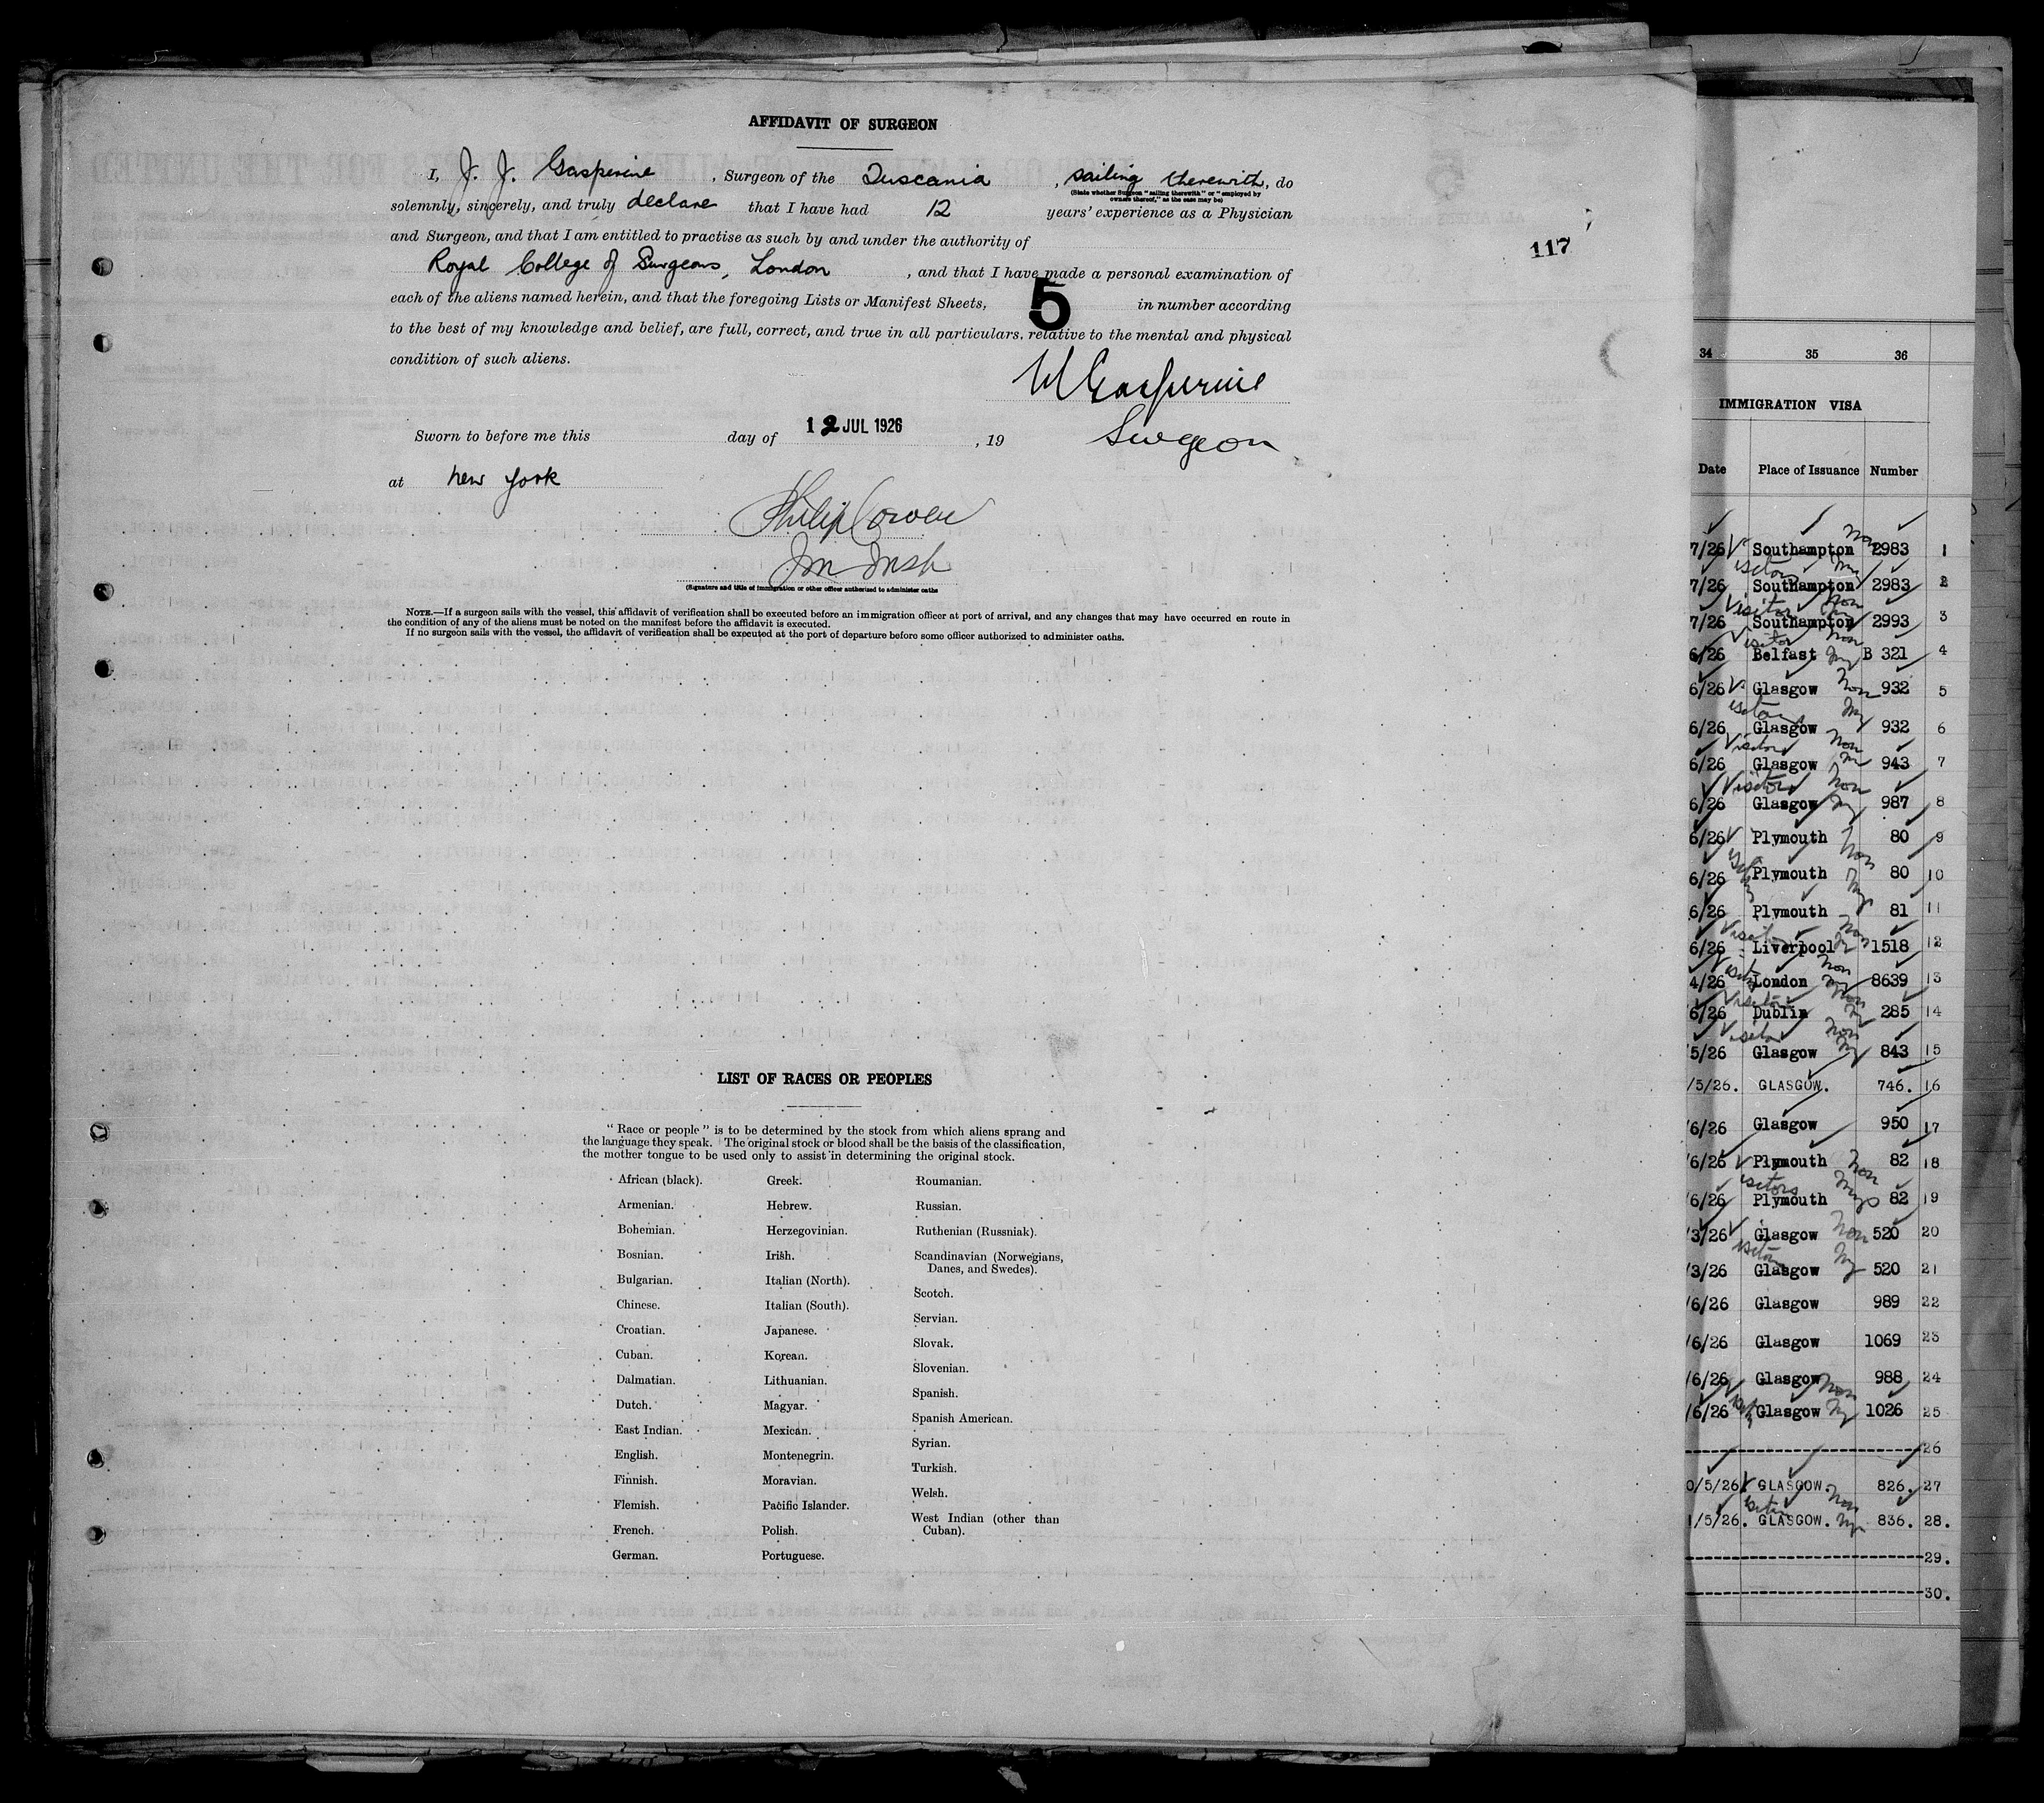 AFFIDAVIT OF SURGEON
I, J. J. Gasperine, Surgeon of the Tuscania, sailing therewith, do
(State whether Surgeon "sailing therewith" or "employed by
owners thereof," as the case may be)
solemnly, sincerely, and truly declare that I have had 12 years' experience as a Physician
and Surgeon, and that I am entitled to practise as such by and under the authority of
Royal College of Surgeons, London, and that I have made a personal examination of
each of the aliens named herein, and that the foregoing Lists or Manifest Sheets, 5 in number according
to the best of my knowledge and belief, are full, correct, and true in all particulars, relative to the mental and physical
condition of such aliens.
Gasperine
Sworn to before me this day of 12 JUL 1926, 19 Surgeon
at New York
Philip Cowen
Im Insp
(Signature and title of immigration or other officer authorized to administer oaths
NOTE.—If a surgeon sails with the vessel, this affidavit of verification shall be executed before an immigration officer at port of arrival, and any changes that may have occurred en route in
the condition of any of the aliens must be noted on the manifest before the affidavit is executed.
If no surgeon sails with the vessel, the affidavit of verification shall be executed at the port of departure before some officer authorized to administer oaths.
117
LIST OF RACES OR PEOPLES
"Race or people" is to be determined by the stock from which aliens sprang and
the language they speak. The original stock or blood shall be the basis of the classification,
the mother tongue to be used only to assist in determining the original stock.
African (black).
Armenian.
Bohemian.
Bosnian.
Bulgarian.
Chinese.
Croatian.
Cuban.
Dalmatian.
Dutch.
East Indian.
English.
Finnish.
Flemish.
French.
German.
Greek.
Hebrew.
Herzegovinian.
Irish.
Italian (North).
Italian (South).
Japanese.
Korean.
Lithuanian.
Magyar.
Mexican.
Montenegrin.
Moravian.
Pacific Islander.
Polish.
Portuguese.
Roumanian.
Russian.
Ruthenian (Russniak).
Scandinavian (Norwegians,
Danes, and Swedes).
Scotch.
Servian.
Slovak.
Slovenian.
Spanish.
Spanish American.
Syrian.
Turkish.
Welsh.
West Indian (other than
Cuban).
34 35 36
IMMIGRATION VISA
Date Place of Issuance Number
7/26 Southampton 2983 1
7/26 Southampton 2983 2
7/26 Southampton 2993 3
6/26 Belfast B 321 4
6/26 Glasgow 932 5
6/26 Glasgow 932 6
6/26 Glasgow 943 7
6/26 Glasgow 987 8
6/26 Plymouth 80 9
6/26 Plymouth 80 10
6/26 Plymouth 81 11
6/26 Liverpool 1518 12
4/26 London 8639 13
6/26 Dublin 285 14
/5/26 Glasgow 843 15
/5/26. GLASGOW. 746. 16
/6/26 Glasgow 950 17
/6/26 Plymouth 82 18
/6/26 Plymouth 82 19
/3/26 Glasgow 520 20
/3/26 Glasgow 520 21
/6/26 Glasgow 989 22
/6/26 Glasgow 1069 23
/6/26 Glasgow 988 24
/6/26 Glasgow 1026 25
26
0/5/26 GLASGOW. 826. 27
1/5/26. GLASGOW. 836. 28.
29.
30.